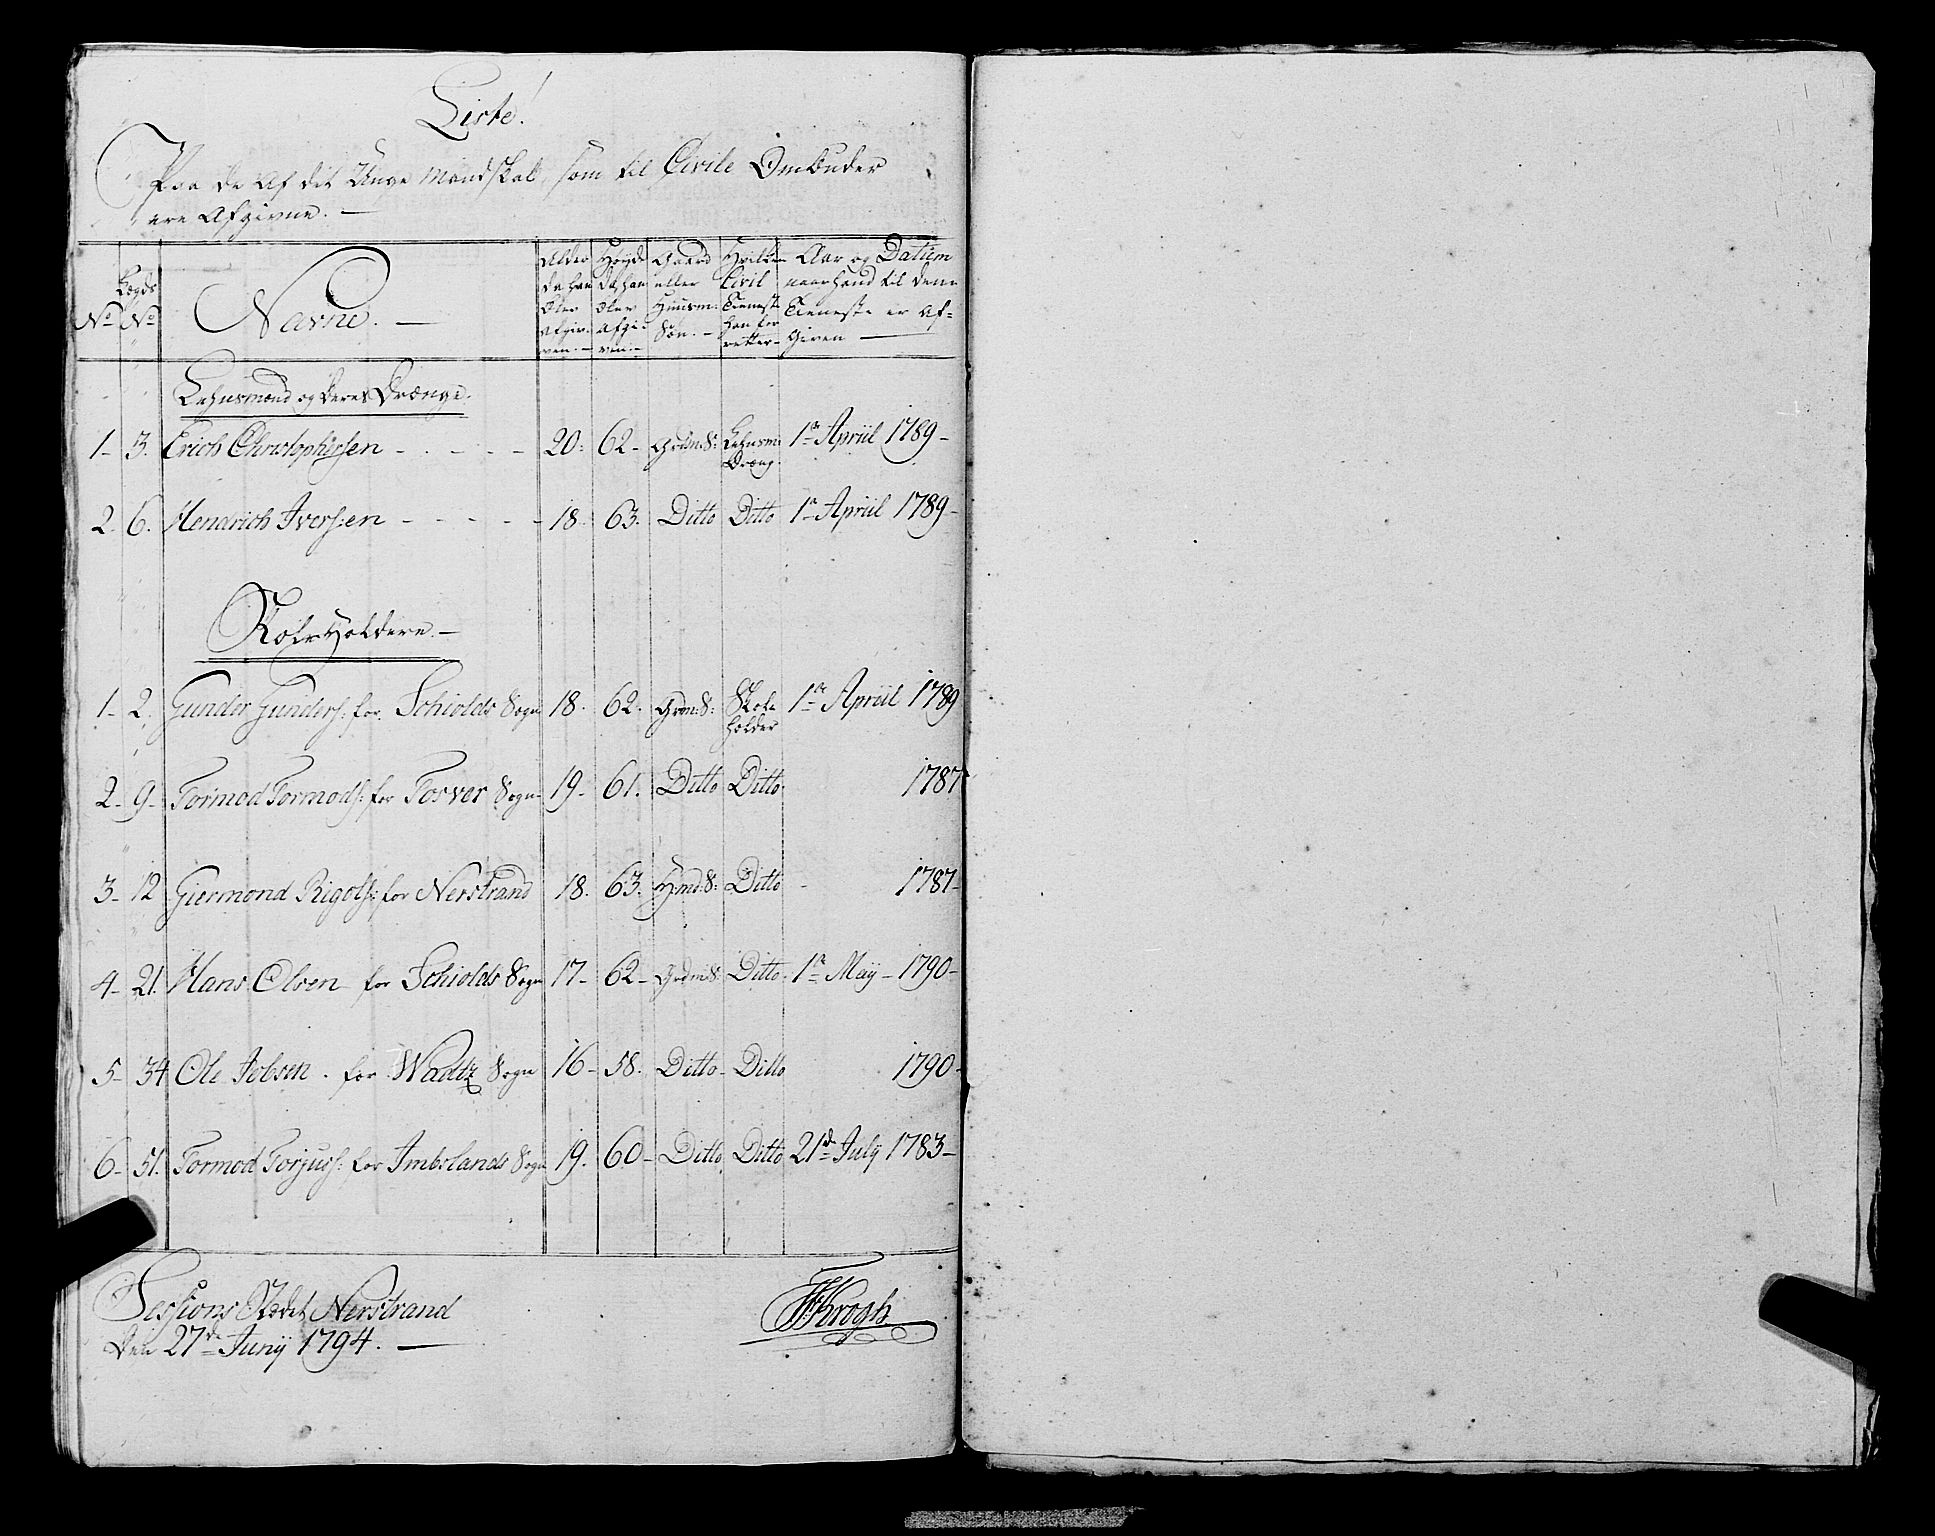 Liste!
Paa de Af dit Unge Mandskab, som til Civile Ombuder
ere Afgivne. —
No Lægds No Navne. — Alder da han blev afgiv-ven. — Høyde da han blev afgi-ven. — Gaard eller Huusm: Søn. — Hvilken Civil Tieneste han for retter — Aar og Datum naar hand til denne Tieneste er Af-Given —
Lehnsmænd og deres Drænge.
1- 3. Erich Christophersen - - - - 20: 62- Grdm:S: Lehnsm: Dræng. 1ste Apriil 1789-
2- 6. Hendrich Iversen - - - - - 18. 63. Ditto Ditto 1ste Apriil 1789-
Skoleholdere. —
1- 2. Gunder Gunders: for Schiolds Sogn 18. 62. Grdm:S: Skole holder 1ste Apriil 1789
2- 9- Tormod Tormods: for Fosver Sogn- 19- 61. Ditto Ditto 1787
3- 12 Giermond Rigols: for Nerstrand 18. 63. Hmd:S: Ditto - 1787-
4- 21. Hans Olsen for Schiolds Sogn 17- 62- Grdm:S: Ditto 1ste Maÿ - 1790-
5- 34 Ole Jobsen. for Wadtz Sogn 16- 58. Ditto Ditto 1790-
6- 51. Tormod Torjus: for Imbslands Sogn 19. 60- Ditto Ditto 21de Julÿ 1783-
Sessions Stædet Nerstrand
Den 27de Junÿ 1794. —
FFKrogh.